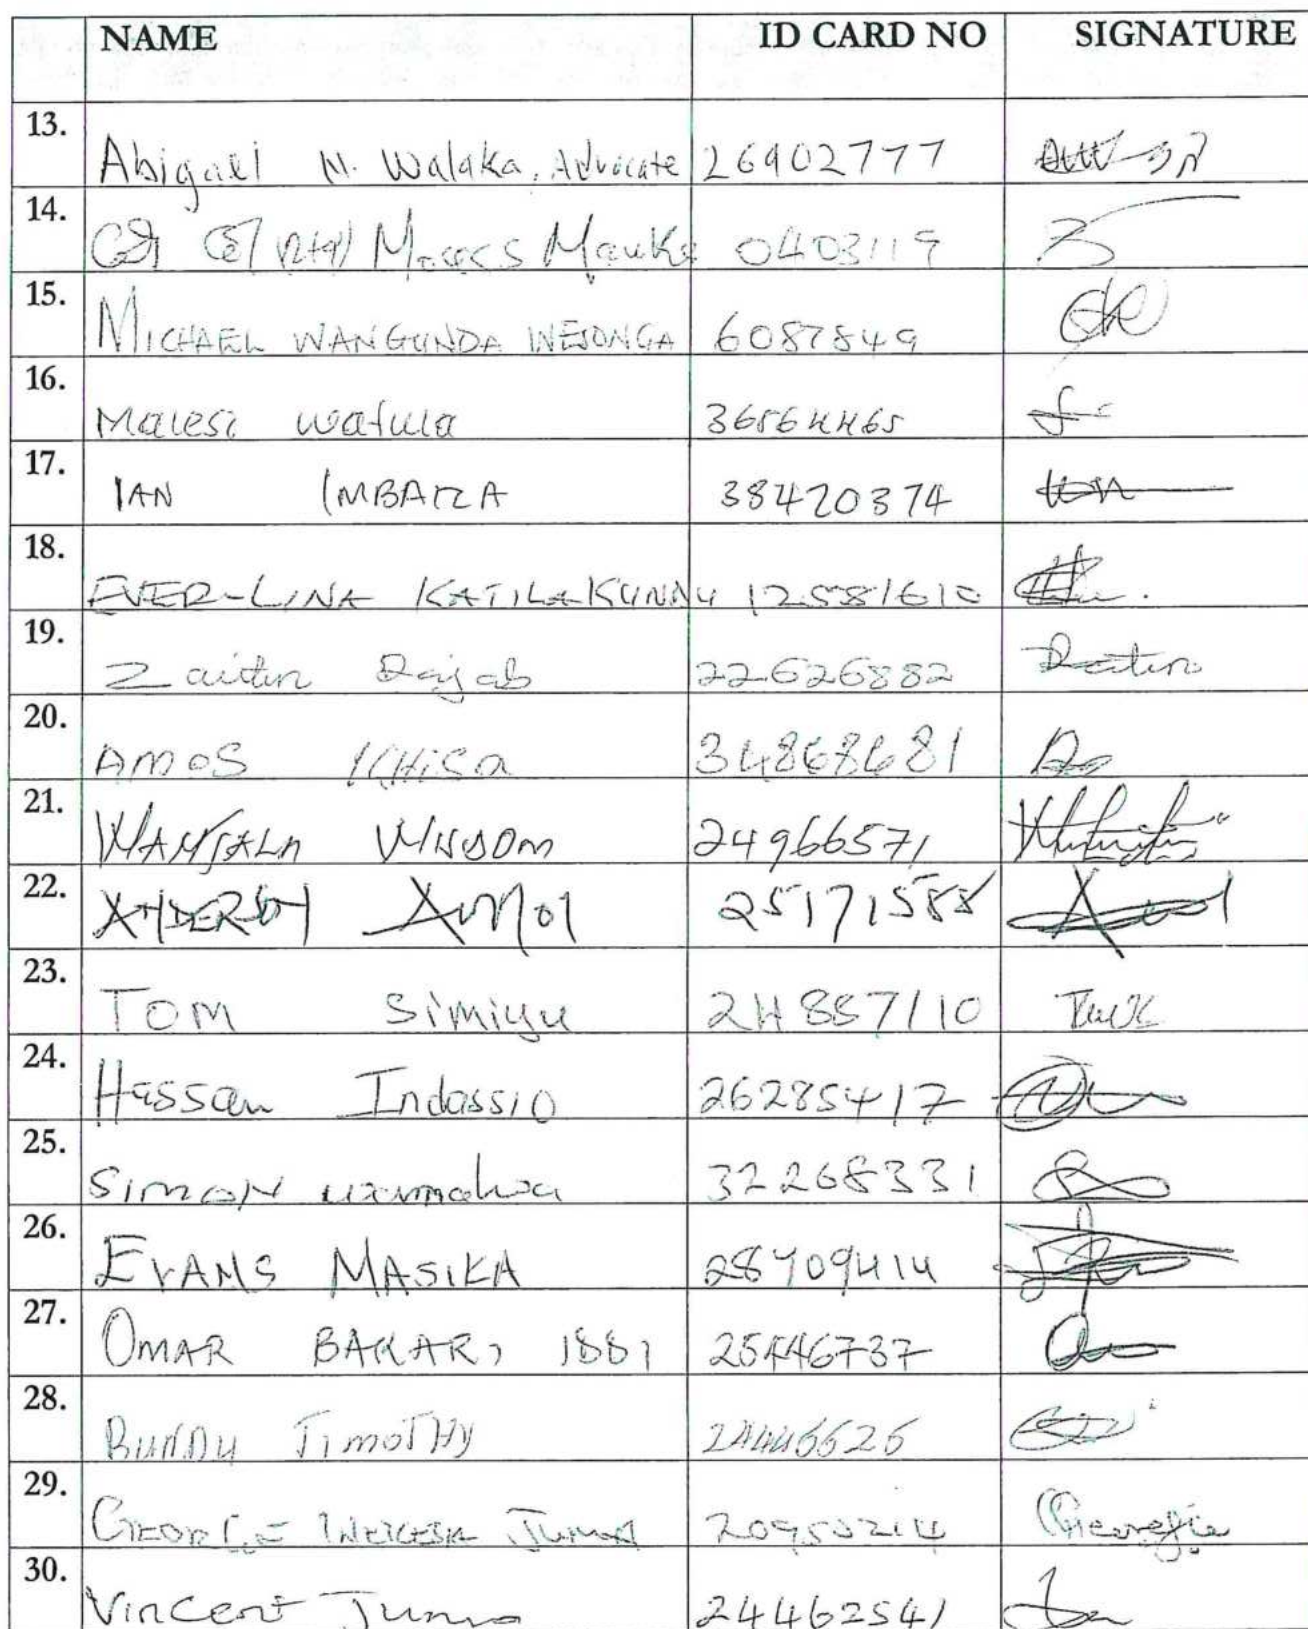 NAME ID CARD NO SIGNATURE
13. Abigael N. Walaka, Advocate 26902777
14. (Rtd) Moses Mauka 0403119
15. MICHAEL WANGUNDA WESONGA 6087849
16. Malesi watula 36564465
17. IAN IMBAIZA 38420374
18. EVER-LINA KATILA KUNDU 12581610
19. Zaitun Rajab 22626882
20. AMOS KHISA 34868681
21. WANJALA WISDOM 24966571
22. 25171588
23. TOM Simiyu 24857110
24. Hassan Indassio 26285417
25. SIMON wamalwa 32268331
26. EVANS MASIKA 28709414
27. OMAR BAKARI 1881 25446737
28. BUNDU TIMOTHY 24446626
29. GEORGE WEKESA JUMA 20950214
30. Vincent Juma 24462541